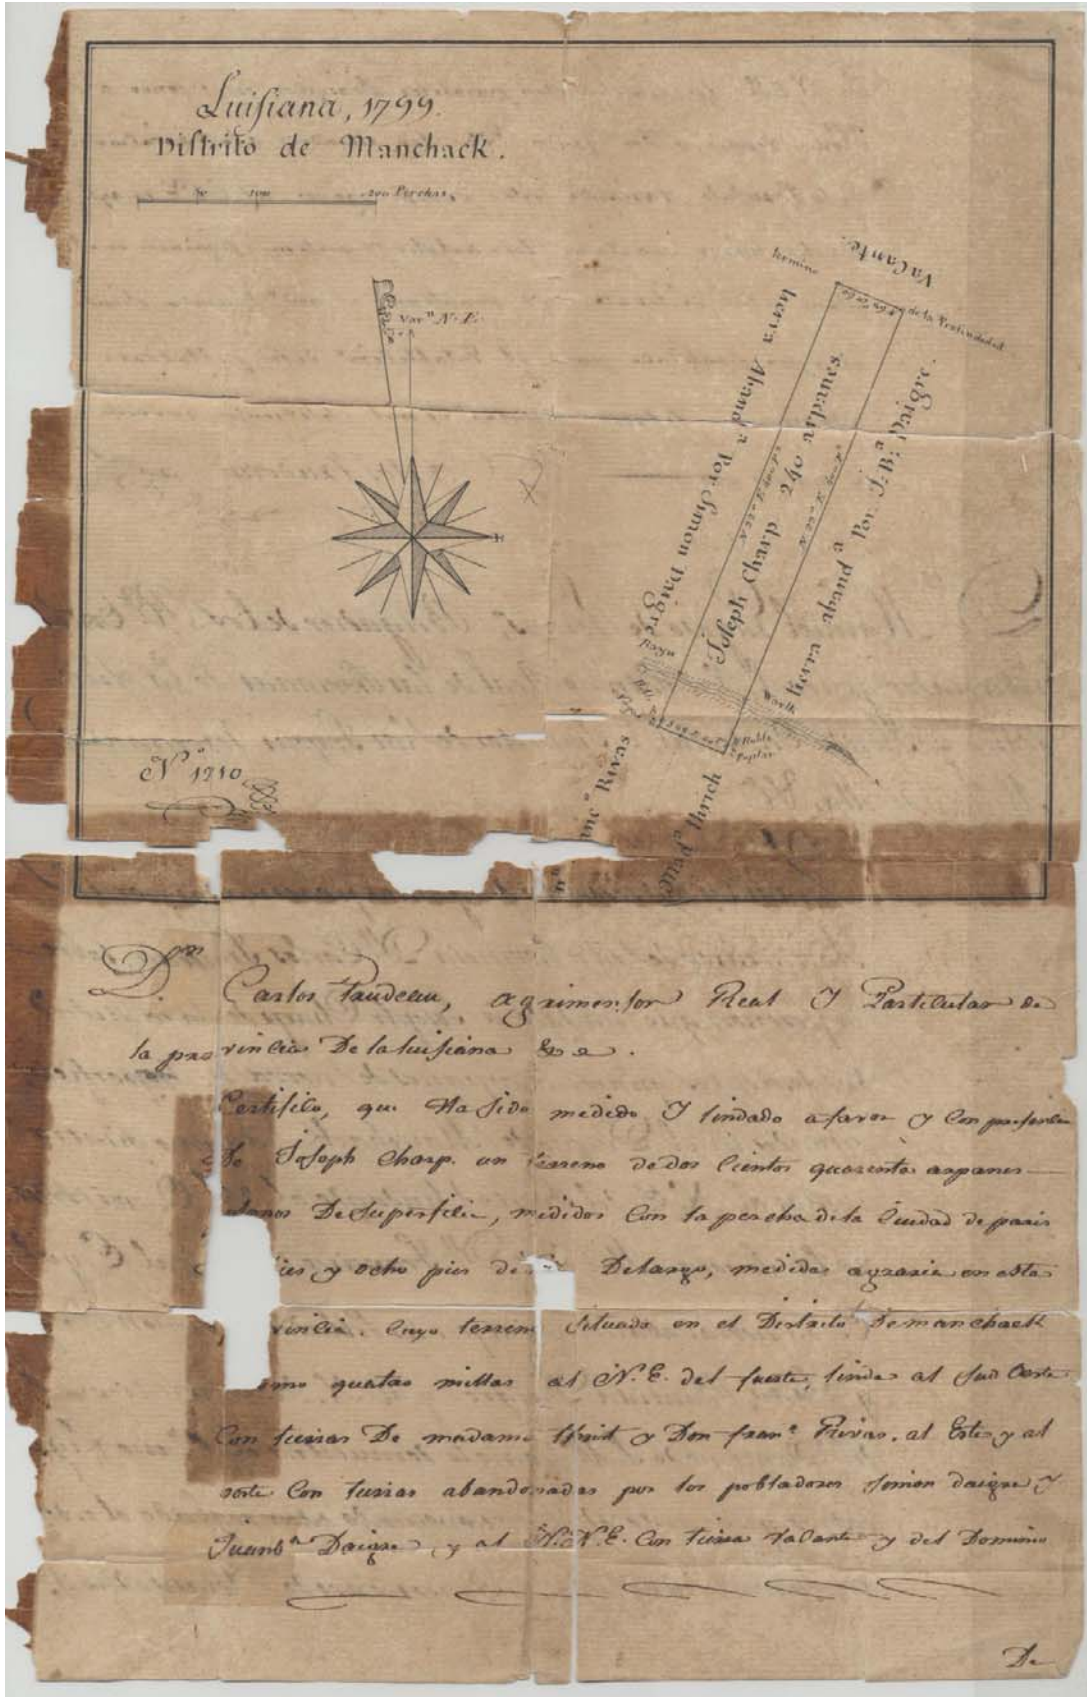 Luisiana, 1799.
Distrito de Manchack.
50 100 200 Perchas.
Var.n N. E.
termino
Vacante.
de la Profundidad
tierra Aband.a Por Simon Daigre
N 22° E 400 P.s
Joseph Charp 240 arpanes.
N 22° E 400 P.s
tierra aband.a Por J: B.a Daigre.
Bayu
Rivas
Mad.a Hirich
Poplar
N.o 1710
D.n Carlos Trudeau, agrimensor Real Y Particular de
la provincia De la luisiana &a.
Certifico, que Ha sido medido Y lindado a favor y con presencia
De Joseph Charp. un terreno de dos cientos quarenta arpanes
planos De Superficie, medidos Con la percha de la Ciudad de paris
y ocho pies de Delargo, medida agraria en esta
vincia. Cuyo terreno Situado en el Distrito De manchack
como quatro millas al N. E. del fuerte, linda al Sud Oeste
Con tierras De madame Hirich y Don fran.co Rivas. al Este, y al
oeste Con tierras abandonadas por los pobladores Simon daigre Y
Juan b.ta Daigre, y al N. N. E. Con tierra Vacante y del Dominio
De